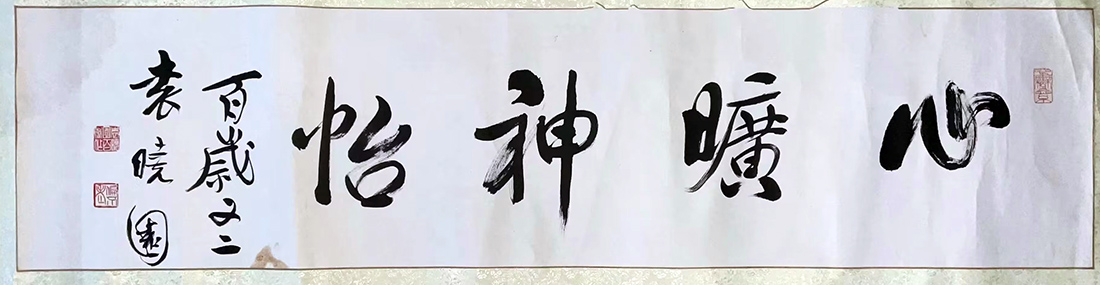 心曠神怡
百歲又二
袁曉園